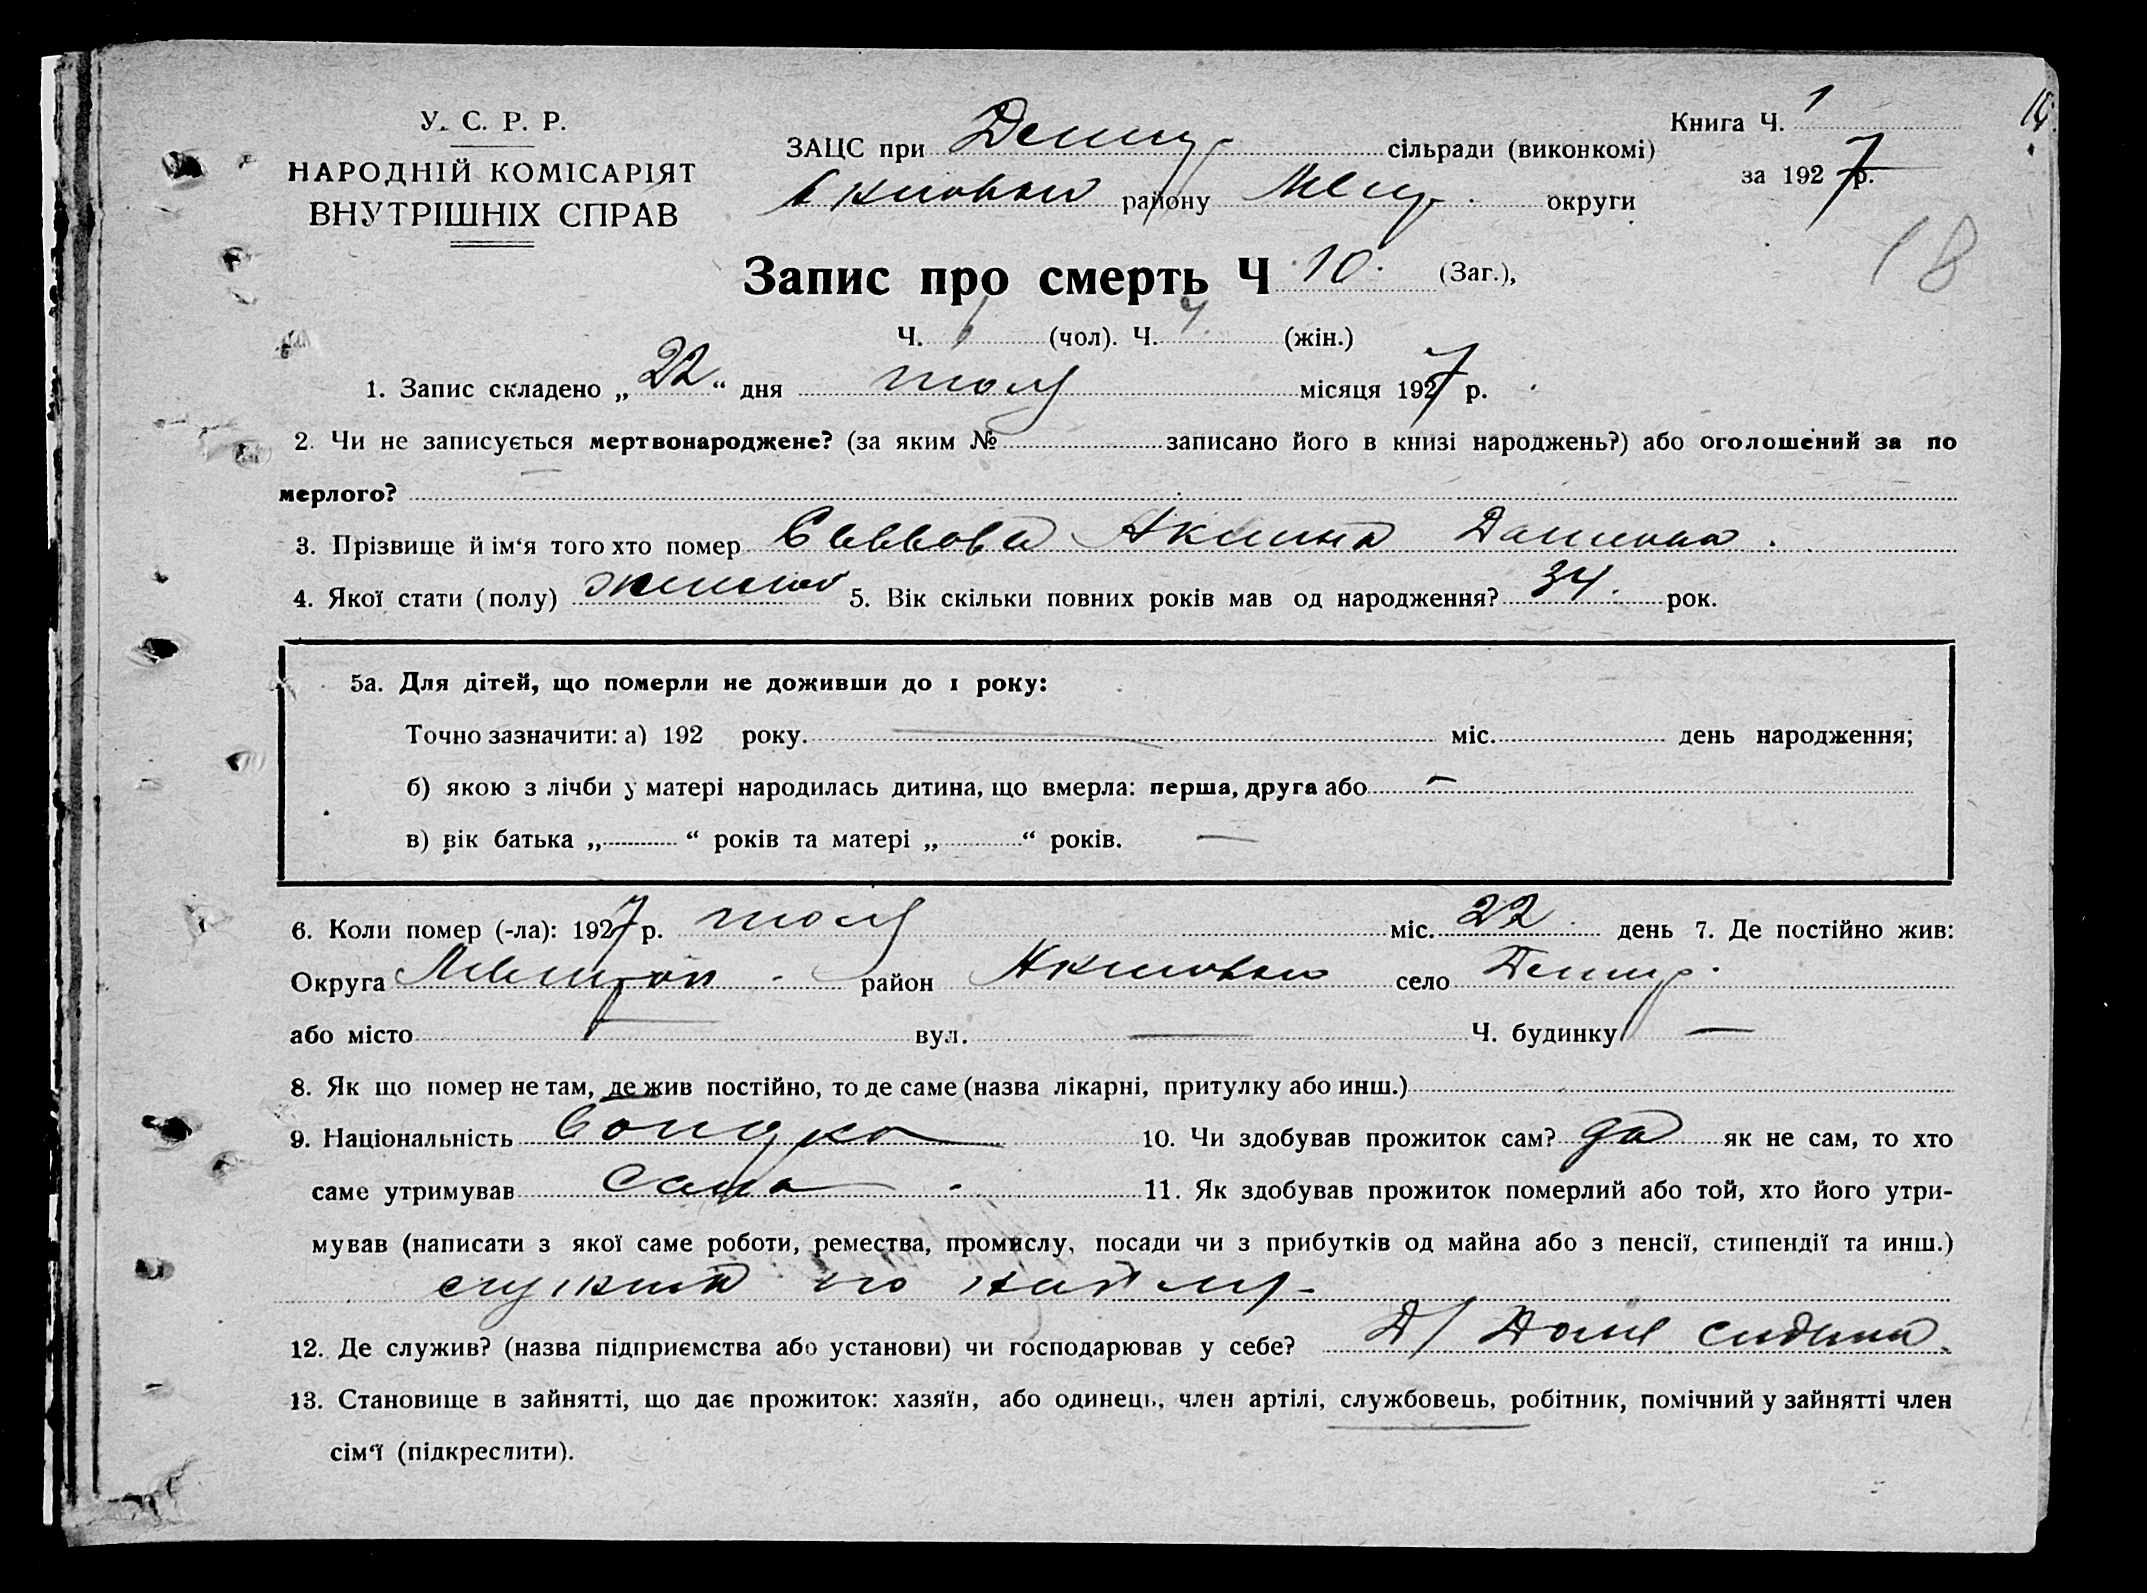 У. С. Р. Р.
НАРОДНІЙ КОМІСАРІЯТ
ВНУТРІШНІХ СПРАВ
Книга Ч. 1
за 1927 р.
18
ЗАЦС при сільради (виконкомі)
району Мел. округи
Запис про смерть Ч 10. (Заг.),
Ч. (чол). Ч. 4 (жін.)
1. Запис складено „22“ дня июля місяця 1927 р.
2. Чи не записується мертвонароджене? (за яким № записано його в книзі народжень?) або оголошений за по
мерлого?
3. Прізвище й ім‘я того хто помер Саввова Акилина
4. Якої стати (полу) 5. Вік скільки повних років мав од народження? 34. рок.
5а. Для дітей, що померли не доживши до 1 року:
Точно зазначити: а) 192 року. — міс. день народження;
б) якою з лічби у матері народилась дитина, що вмерла: перша, друга або —
в) вік батька „ “ років та матері „ “ років. —
6. Коли помер (-ла): 1927 р. июля міс. 22 день 7. Де постійно жив:
Округа Мелитоп. район село
або місто — вул. — Ч. будинку —
8. Як що помер не там, де жив постійно, то де саме (назва лікарні, притулку або инш.)
9. Національність 10. Чи здобував прожиток сам? да як не сам, то хто
саме утримував Сама 11. Як здобував прожиток померлий або той, хто його утри-
мував (написати з якої саме роботи, ремества, промислу, посади чи з прибутків од майна або з пенсії, стипендії та инш.)
по найму
12. Де служив? (назва підприємства або установи) чи господарював у себе?
13. Становище в зайнятті, що дає прожиток: хазяїн, або одинець, член артілі, службовець, робітник, помічний у зайнятті член
сім‘ї (підкреслити).